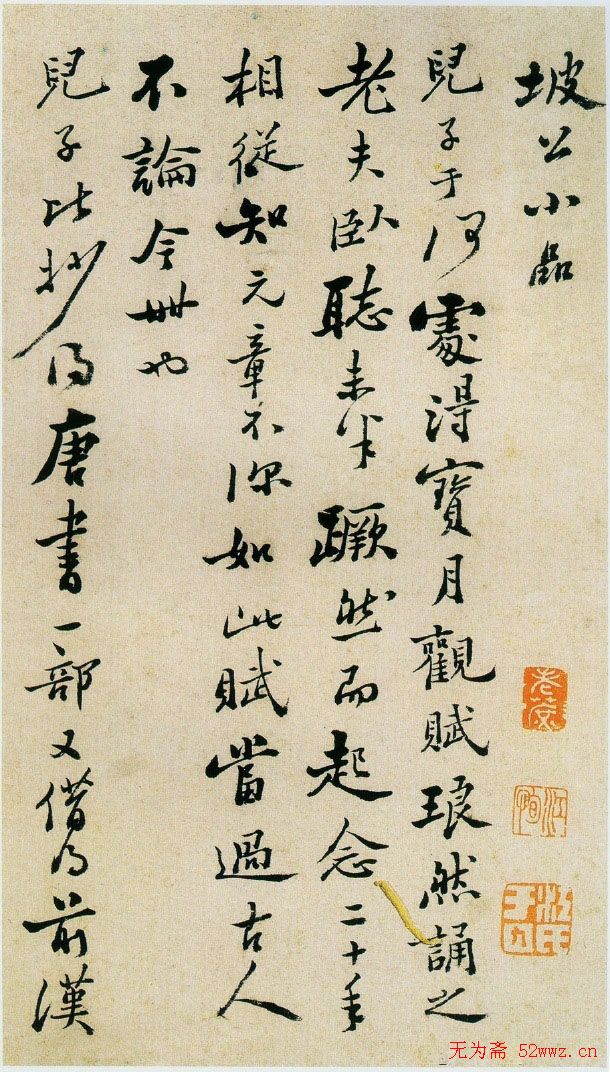 坡公小品
兒子于何處得寶月觀賦琅然誦之
老夫臥聽未半蹶然而起念二十年
相從知元章不深如此賦當過古人
不論今世也
兒子比抄得唐書一部又借得前漢
无为斋 52wwz.cn